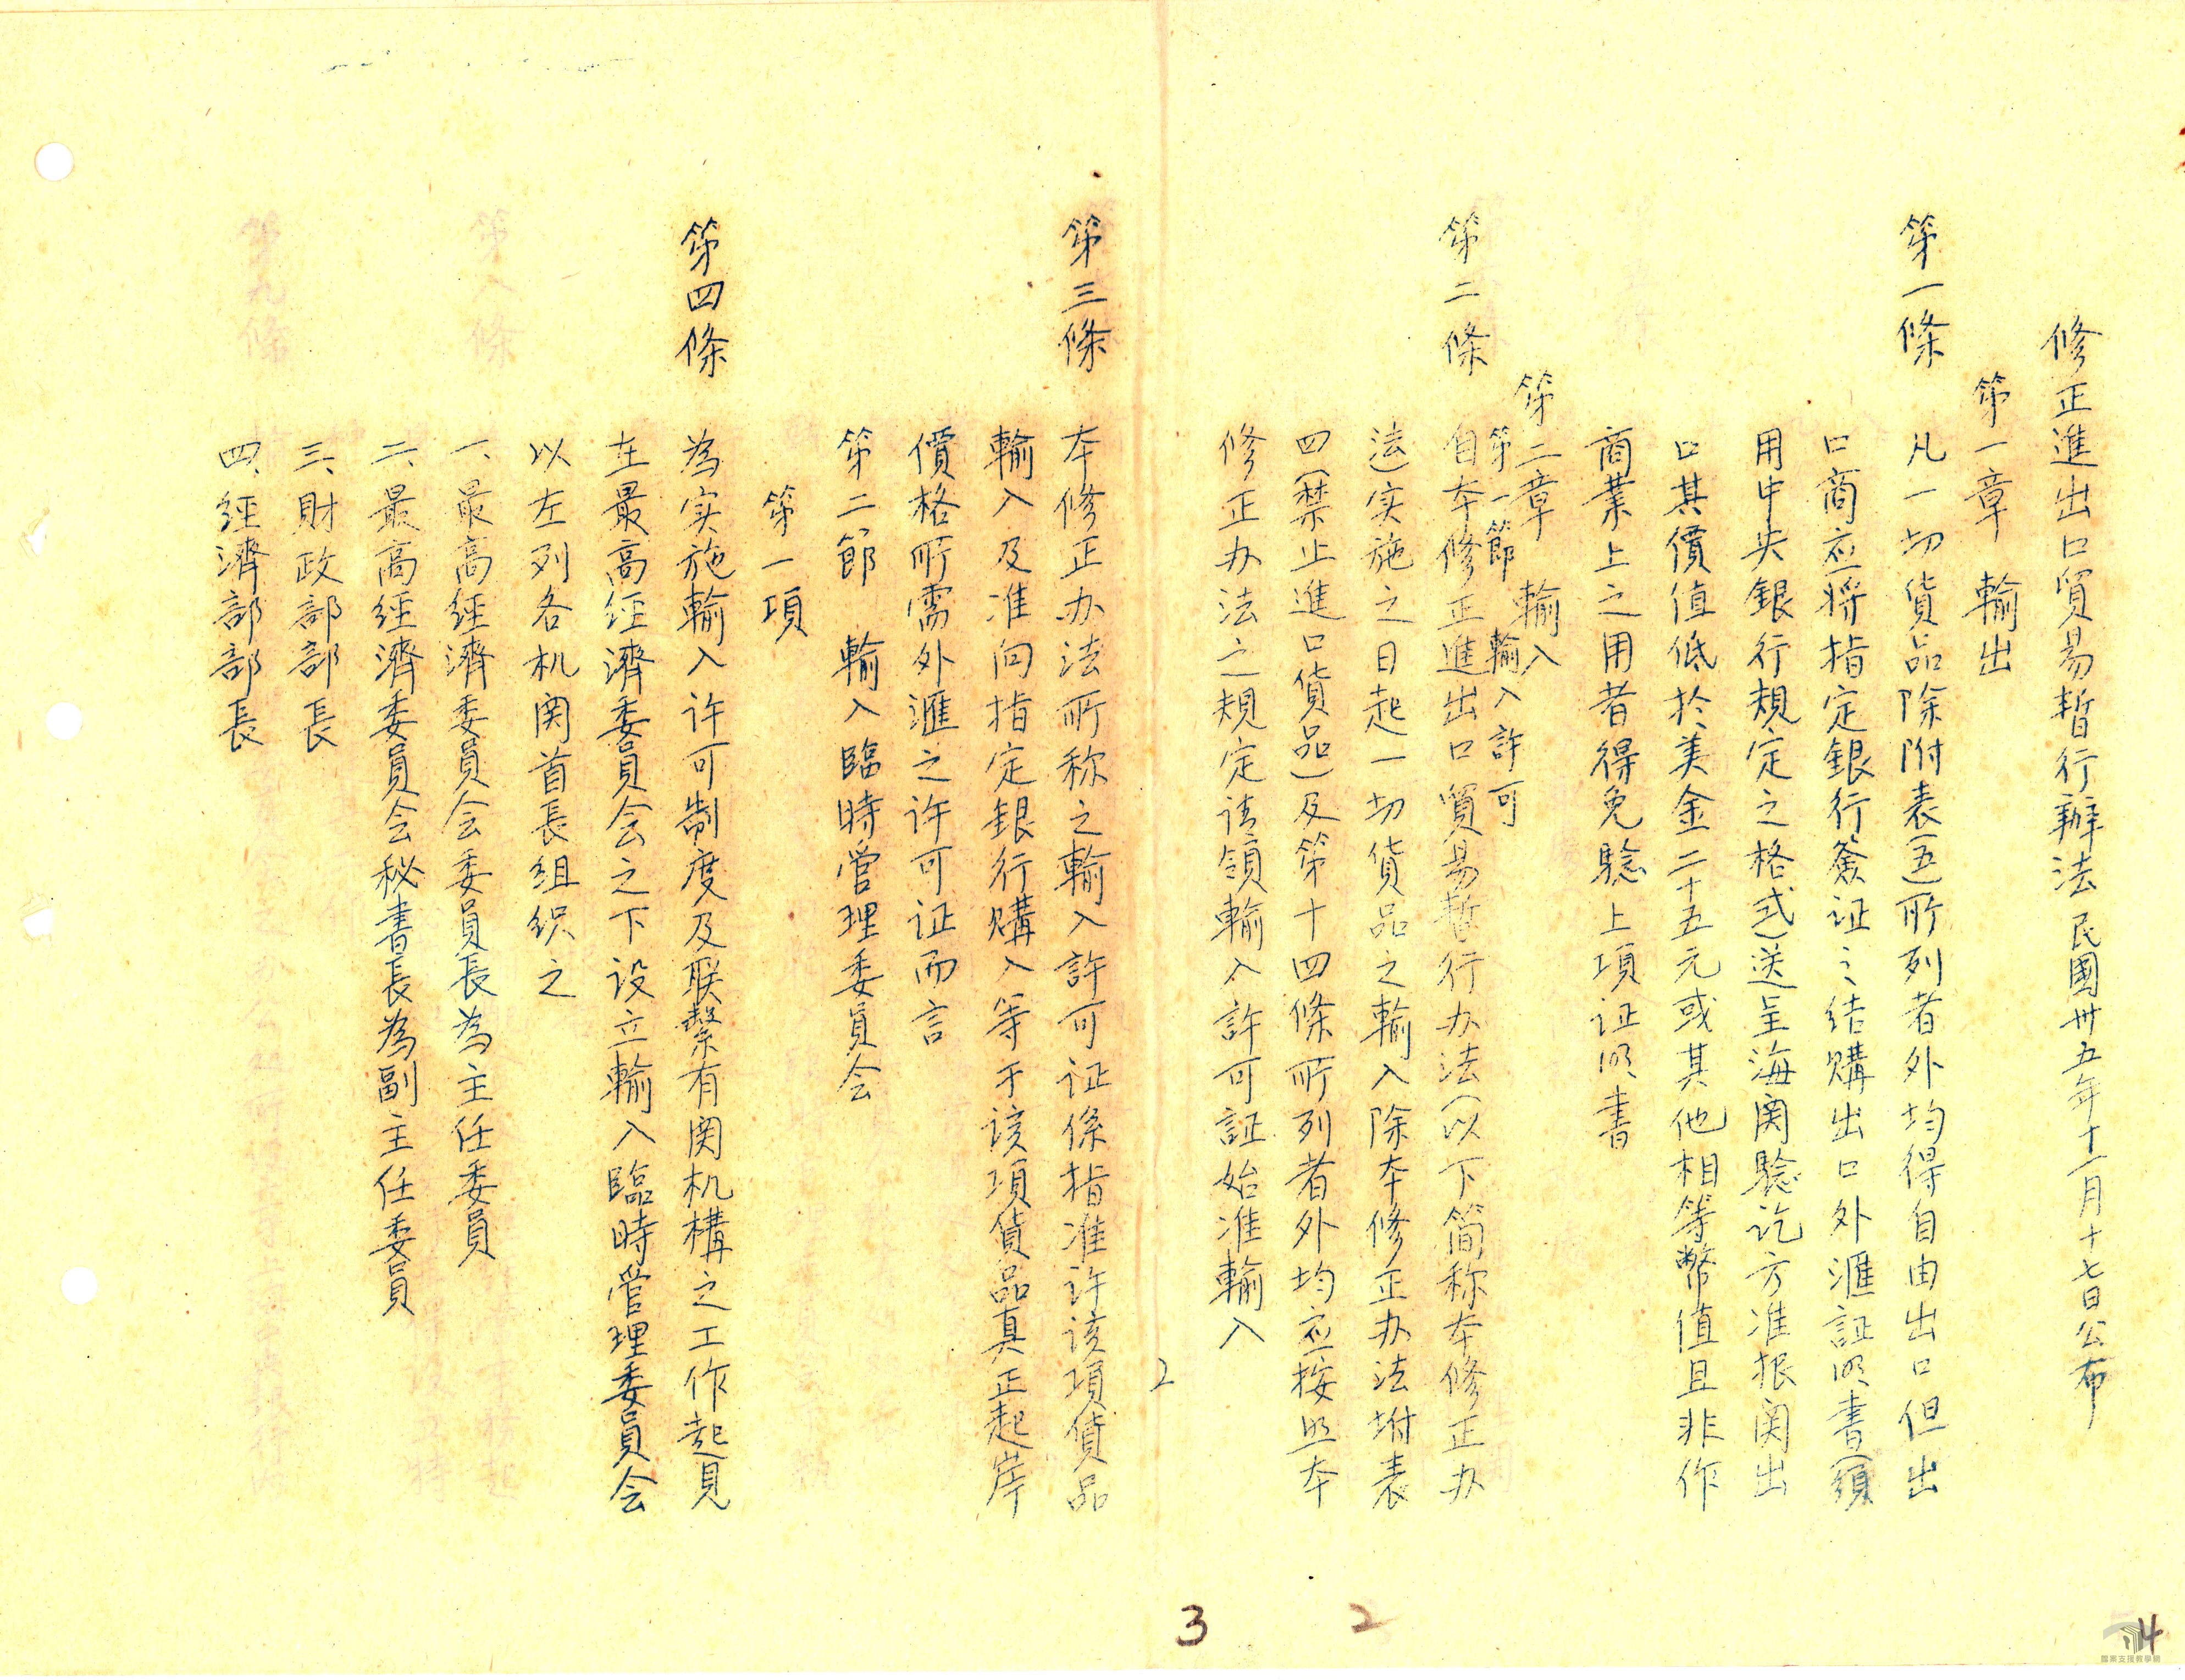 修正進出口貿易暫行辦法民國卅五年十一月十七日公布
第一章　輸出
第一條　凡一切貨品除附表(五)所列者外均得自由出口但出
口商应將指定銀行簽证之结購出口外滙証明書(須
用中央銀行規定之格式)送呈海関驗讫方准报関出
口其價值低於美金二十五元或其他相等幣值且非作
商業上之用者得免驗上項证明書
第二章　輸入
第一節　輸入許可
第二條　自本修正進出口貿易暫行办法(以下简称本修正办
法)实施之日起一切貨品之輸入除本修正办法坿表
四(禁止進口貨品)及第十四條所列者外均应按照本
修正办法之規定请領輸入許可証始准輸入
2
第三條　本修正办法所称之輸入許可证係指准许该項貨品
輸入及准向指定銀行購入等于该項貨品真正起岸
價格所需外滙之许可证而言
第二節　輸入臨時管理委員会
第一項
第四條　為实施輸入许可制度及联繫有関机構之工作起見
在最高经濟委員会之下设立輸入臨時管理委員会
以左列各机関首長组织之
一、最高经濟委員会委員長為主任委員
二、最高经濟委員会秘書長為副主任委員
三、財政部部長
四、经濟部部長
3
2
4
檔案支援教學網